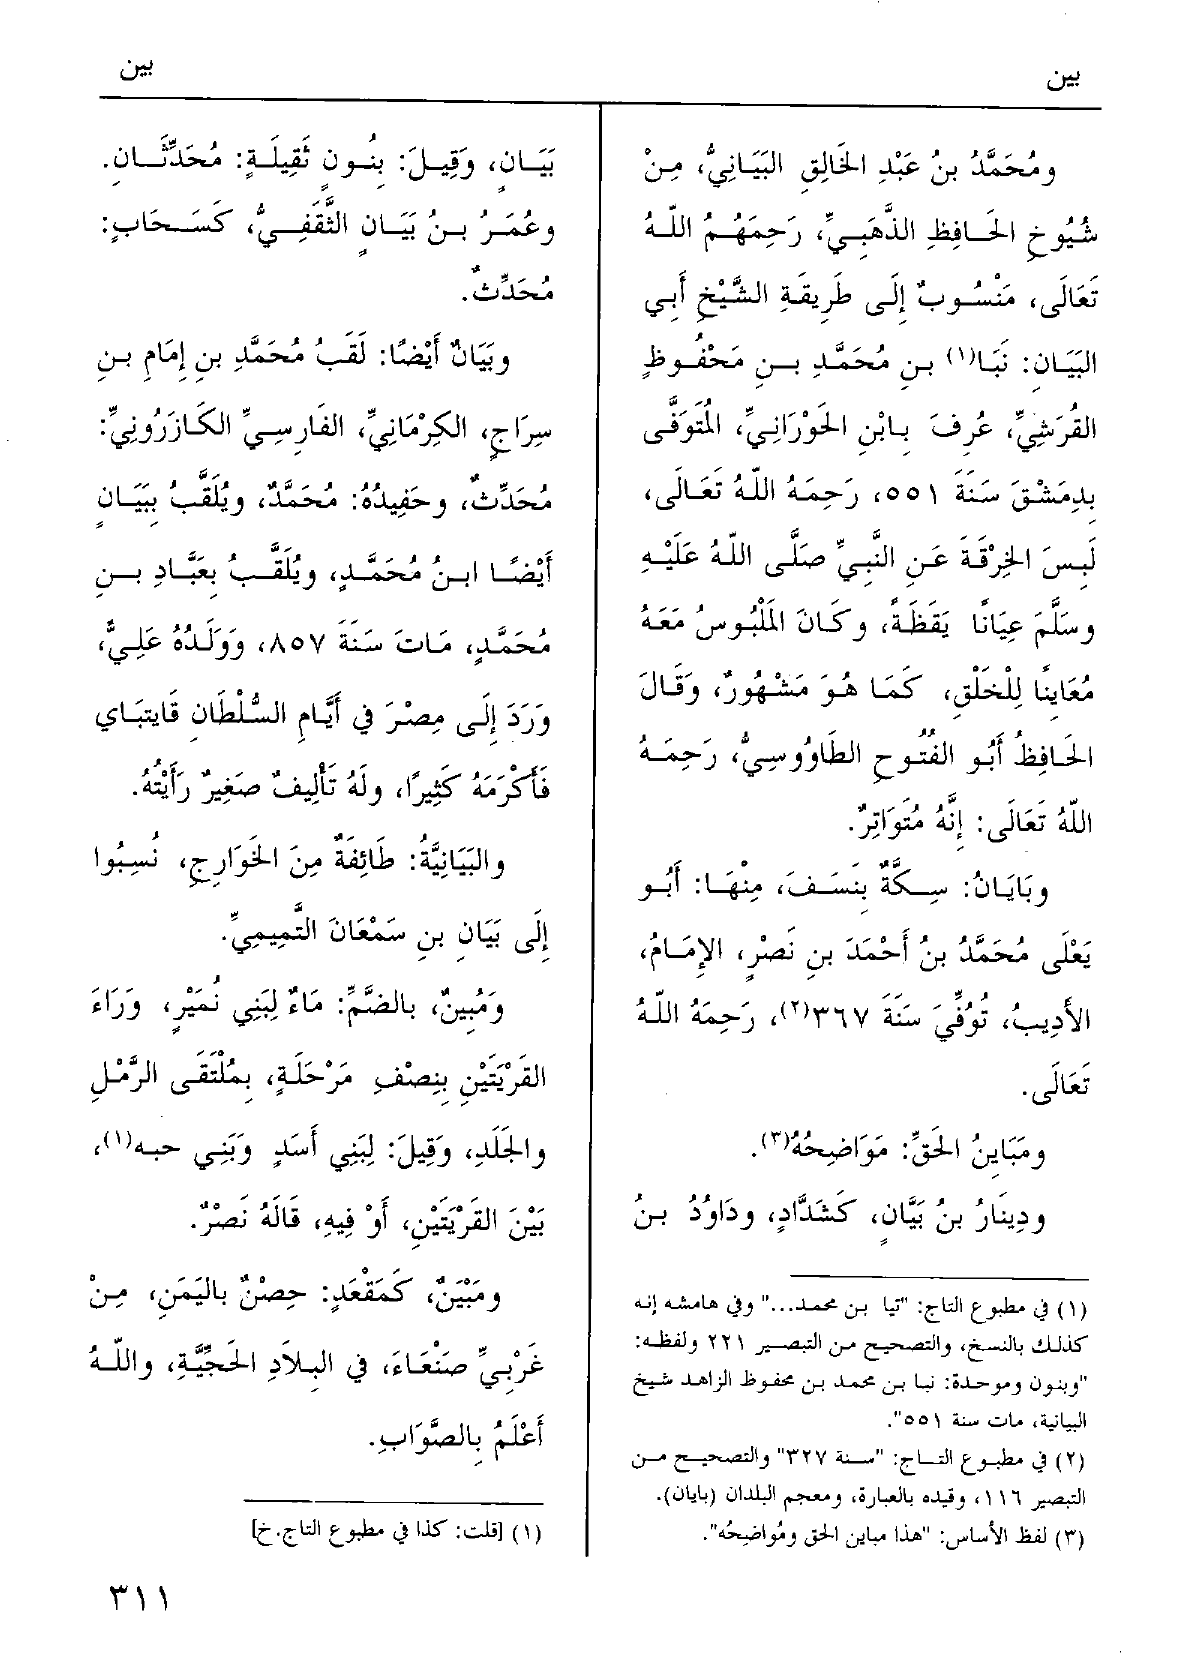 بين
بين
ومُحَمَّدُ بنُ عَبْدِ الخَالِقِ البَيَانِيُّ، مِنْ
شُيُوخِ الحَافِظِ الذَّهَبِيِّ، رَحِمَهُمُ اللّهُ
تَعَالَى، مَنْسُوبٌ إِلَى طَرِيقَةِ الشَّيْخِ أَبي
البَيَانِ: نَبَا(١) بنِ مُحَمَّدِ بنِ مَحْفُوظٍ
القُرَشِيِّ، عُرِفَ بابْنِ الحَوْرَانِيِّ، المُتَوَفَّى
بدِمَشْقَ سَنَةَ ٥٥١، رَحِمَهُ اللّهُ تَعَالَى،
لَبِسَ الخِرْقَةَ عَنِ النَّبِيِّ صَلَّى اللّهُ عَلَيْهِ
وسَلَّمَ عِيَانًا يَقَظَةً، وكَانَ المَلْبُوسُ مَعَهُ
مُعَاينًا لِلْخَلْقِ، كَمَا هُوَ مَشْهُورٌ، وَقَالَ
الحَافِظُ أَبُو الفُتُوحِ الطَّاوُوسِيُّ، رَحِمَهُ
اللّهُ تَعَالَى: إِنَّهُ مُتَوَاتِرٌ.
وبَايَانُ: سِكَّةٌ بِنَسَفَ، مِنْهَا: أَبُو
يَعْلَى مُحَمَّدُ بنُ أَحْمَدَ بنِ نَصْرٍ، الإِمَامُ،
الأَدِيبُ، تُوُفِّيَ سَنَةَ ٣٦٧(٢)، رَحِمَهُ اللّهُ
تَعَالَى.
ومَبَاينُ الحَقِّ: مَوَاضِحُهُ(٣).
ودِينَارُ بنُ بَيَّانٍ، كَشَدَّادٍ، ودَاوُدُ بنُ
(١) في مطبوع التاج: "تيا بن محمد..." وفي هامشه إنه
كذلك بالنسخ، والتصحيح من التبصير ٢٢١ ولفظه:
"وبنون وموحدة: نبا بن محمد بن محفوظ الزاهد شيخ
البيانية، مات سنة ٥٥١".
(٢) في مطبوع التاج: "سنة ٣٢٧" والتصحيح من
التبصير ١١٦، وقيده بالعبارة، ومعجم البلدان (بايان).
(٣) لفظ الأساس: "هذا مباين الحق ومُواضِحُه".
بَيَانٍ، وَقِيلَ: بِنُونٍ ثَقِيلَةٍ: مُحَدِّثَانِ.
وعُمَرُ بنُ بَيَانٍ الثَّقَفِيُّ، كَسَحَابٍ:
مُحَدِّثٌ.
وبَيَانٌ أَيْضًا: لَقَبُ مُحَمَّدِ بنِ إِمَامِ بنِ
سِرَاجٍ، الكِرْمَانِيِّ، الفَارِسِيِّ الكَازَرُونِيِّ:
مُحَدِّثٌ، وحَفِيدُهُ: مُحَمَّدٌ، ويُلَقَّبُ ببَيَانٍ
أَيْضًا ابنُ مُحَمَّدٍ، ويُلَقَّبُ بعَبَّادِ بنِ
مُحَمَّدٍ، مَاتَ سَنَةَ ٨٥٧، وَوَلَدُهُ عَلِيٌّ،
وَرَدَ إِلَى مِصْرَ في أَيَّامِ السُّلْطَانِ قَايتبَاي
فَأَكْرَمَهُ كَثِيرًا، ولَهُ تَأْلِيفٌ صَغِيرٌ رَأَيْتُهُ.
والبَيَانِيَّةُ: طَائِفَةٌ مِنَ الخَوَارِجِ، نُسِبُوا
إِلَى بَيَانِ بنِ سَمْعَانَ التَّمِيمِيِّ.
وَمُبِينٌ، بالضَّمِّ: مَاءٌ لِبَنِي نُمَيْرٍ، وَرَاءَ
القَرْيَتَيْنِ بِنِصْفِ مَرْحَلَةٍ، بِمُلْتَقَى الرَّمْلِ
والجَلَدِ، وَقِيلَ: لِبَنِي أَسَدٍ وَبَنِي حبه(١)،
بَيْنَ القَرْيَتَيْنِ، أَوْ فِيهِ، قَالَهُ نَصْرٌ.
ومَبْيَنٌ، كَمَقْعَدٍ: حِصْنٌ باليَمَنِ، مِنْ
غَرْبِيِّ صَنْعَاءَ، في البِلَادِ الحَجِّيَّةِ، واللّهُ
أَعْلَمُ بِالصَّوَابِ.
(١) [قلت: كذا في مطبوع التاج.خ]
٣١١